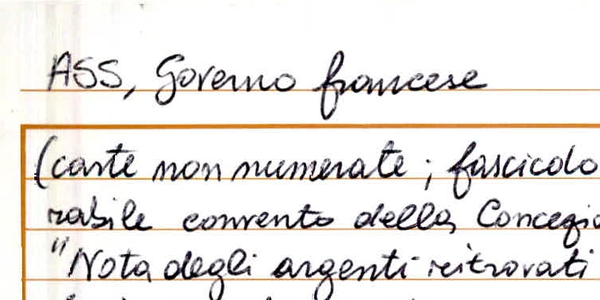 ASS, Governo francese
(carte non numerate; fascicolo
rabile convento della Concezio
"Nota degli argenti ritrovati